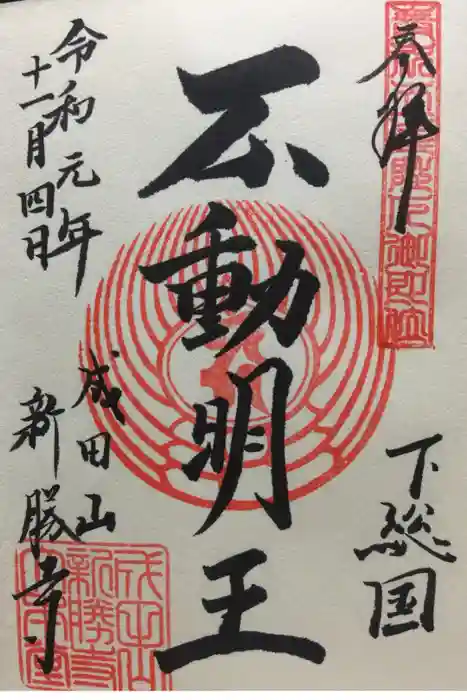 奉拝
下総国
不動明王
成田山
新勝寺
令和元年
十一月四日
成田山
新勝寺